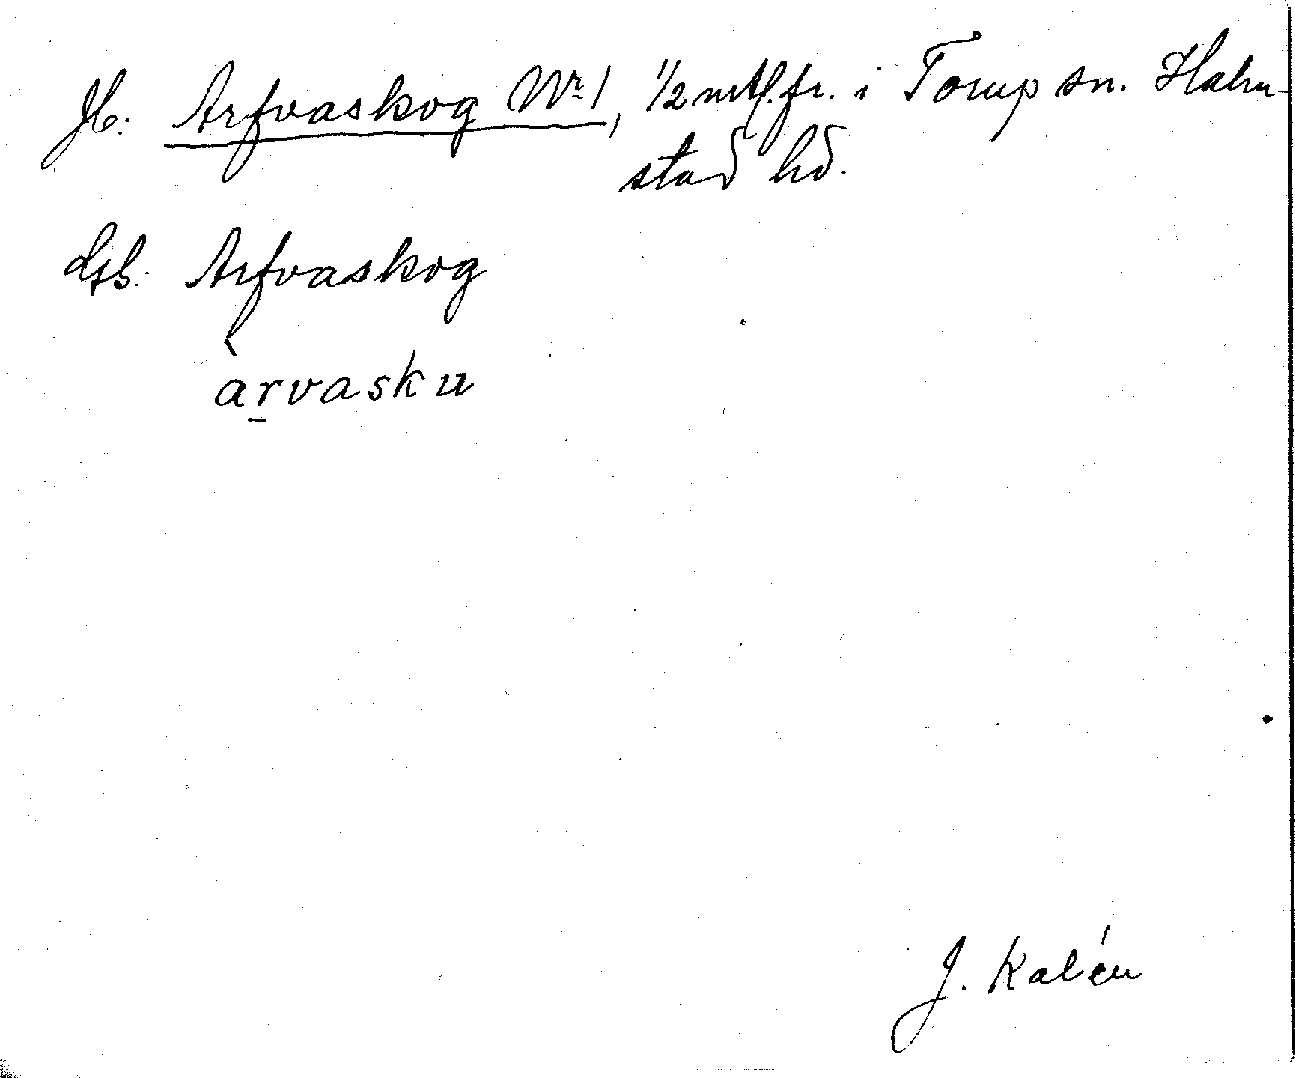 Jb. Arfvaskog Nr 1, 1/2 mtl. fr. i Torup sn. Halm-
stad hd.
Gsb. Arfvaskog
àrvasku
J. Kalén